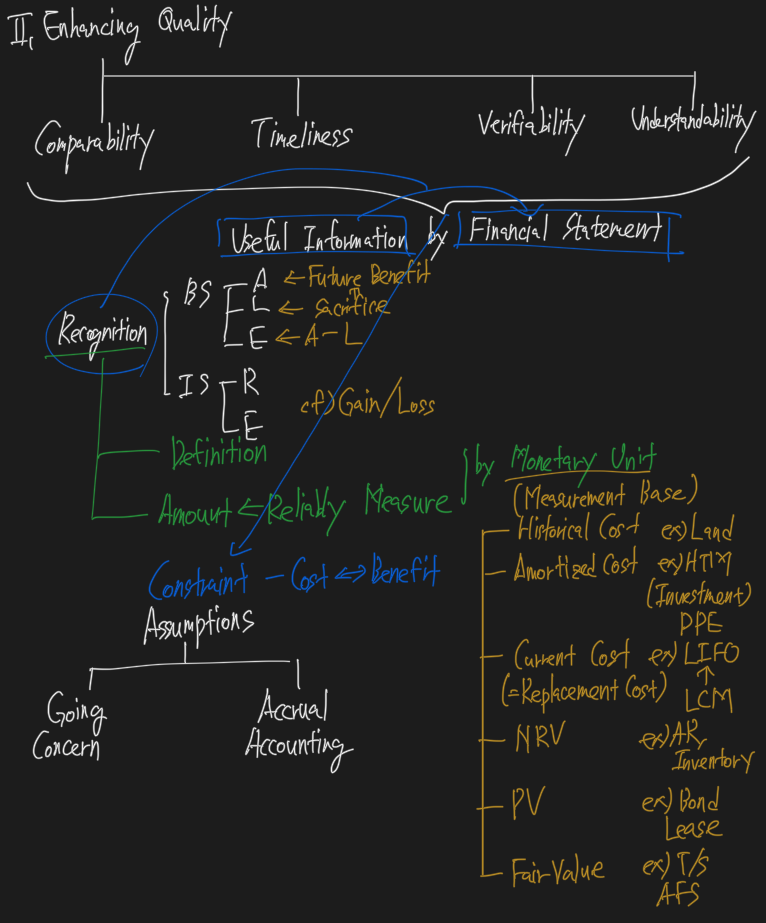 II. Enhancing Quality
Comparability Timeliness Verifiability Understandability
Useful Information by Financial Statement
Recognition
BS
A ← Future Benefit
L ← Sacrifice
E ← A - L
IS
R
E
cf) Gain/Loss
Definition
Amount ← Reliably Measure
by Monetary Unit
(Measurement Base)
Historical Cost ex) Land
Amortized Cost ex) HTM
(Investment)
PPE
Current Cost ex) LIFO
(=Replacement Cost) ↑
LCM
NRV ex) AR,
Inventory
PV ex) Bond
Lease
Fair Value ex) T/S
AFS
Constraint - Cost ⇔ Benefit
Assumptions
Going
Concern
Accrual
Accounting